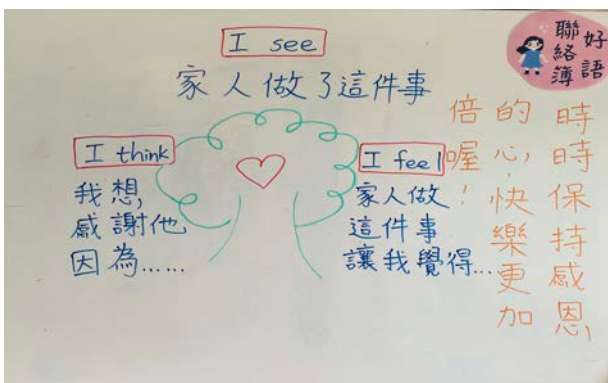 I see
家人做了這件事
I think
我想,
感謝他
因為......
I feel
家人做
這件事
讓我覺得...
好語
聯絡簿
時時保持感恩
的心,快樂更加
倍喔!